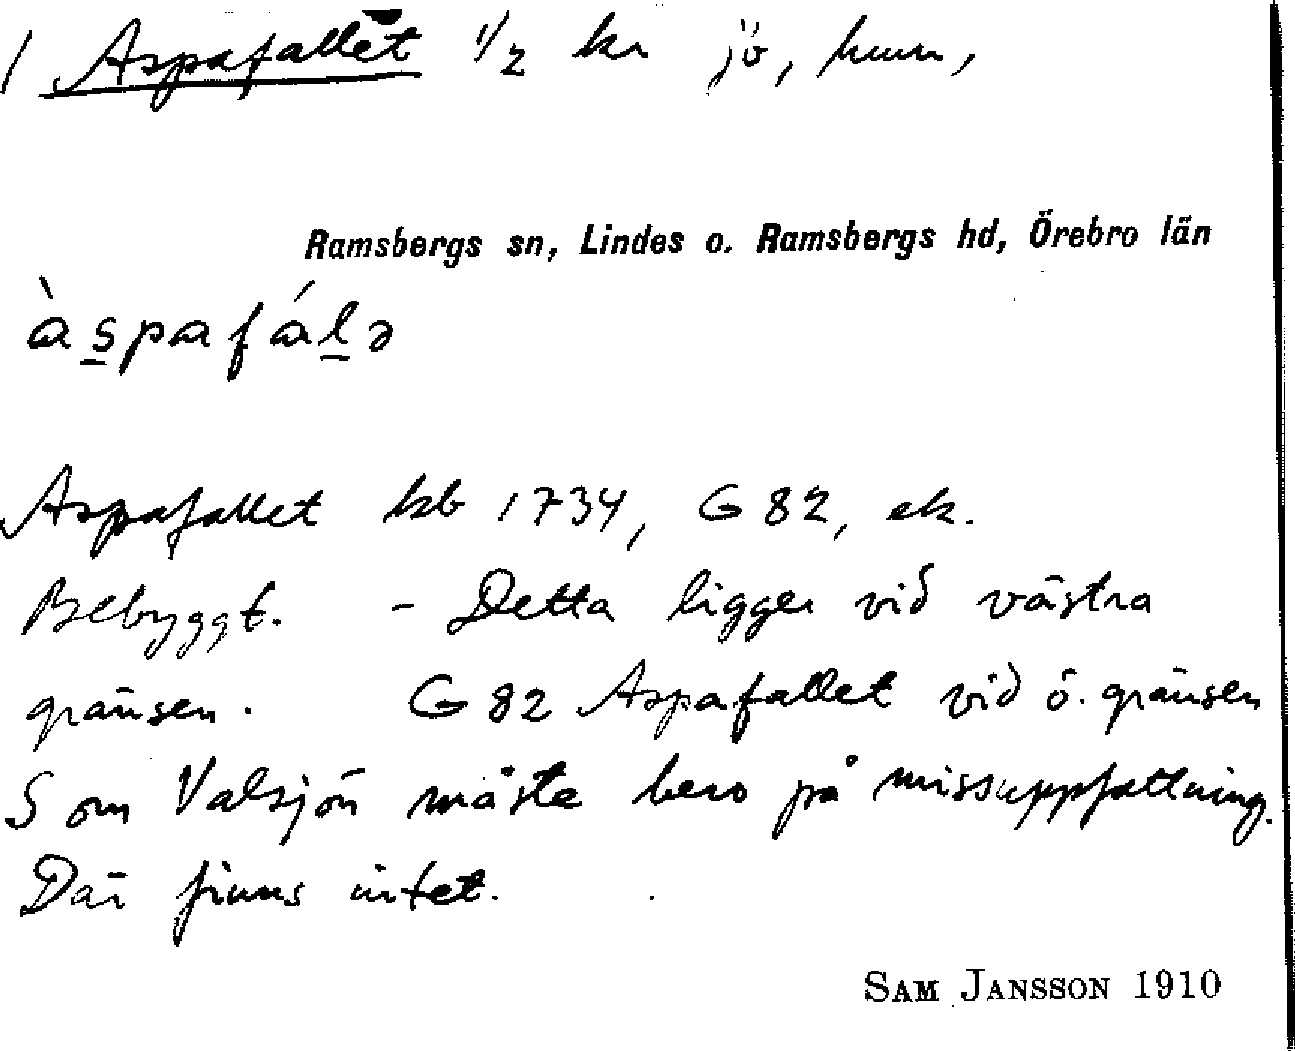 1 Aspafallet 1/2 kr jö, hmm,
Ramsbergs sn, Lindes o. Ramsbergs hd, Örebro län
àspafálə
Aspafallet kb 1734, G 82, ek.
Bebyggt. - Detta ligger vid västra
gränsen. G 82 Aspafallet vid ö. gränsen
S om Valsjön måste bero på missuppfattning.
Där finns intet.
SAM JANSSON 1910